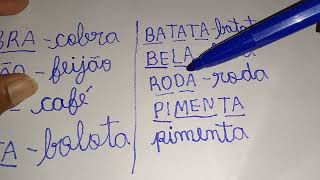 BRA-cobra
ÃO-feijão
-café
TA-bolota
BATATA-batat
BELA
RODA-roda
PIMENTA
pimenta